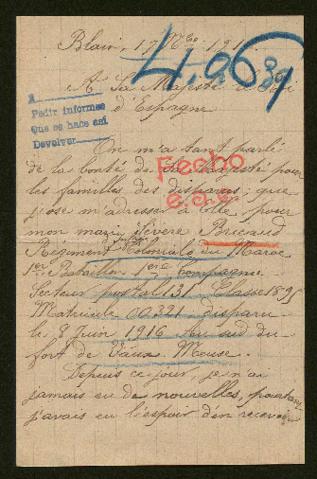 Blain, 17 Nbre 191
4.969
A Sa Majesté le Roi
d'Espagne
A
Pedir informes
Que se hace así
Devolver
On m'a tant parlé
de la bonté de Sa Majesté pour
les familles des disparus, que
j'ose m'adresser à elle pour
Fecho
mon mari, Sévère Bricaud
Régiment Colonial du Maroc
1er Bataillon 1ère Compagnie
Secteur postal 131. Classe 1895
Matricule 00321 disparu
le 8 Juin 1916 au sud du
fort de Vaux Meuse.
Depuis ce jour, je n'ai
jamais eu de nouvelles, pourtant
j'avais eu l'espoir d'en recevoir